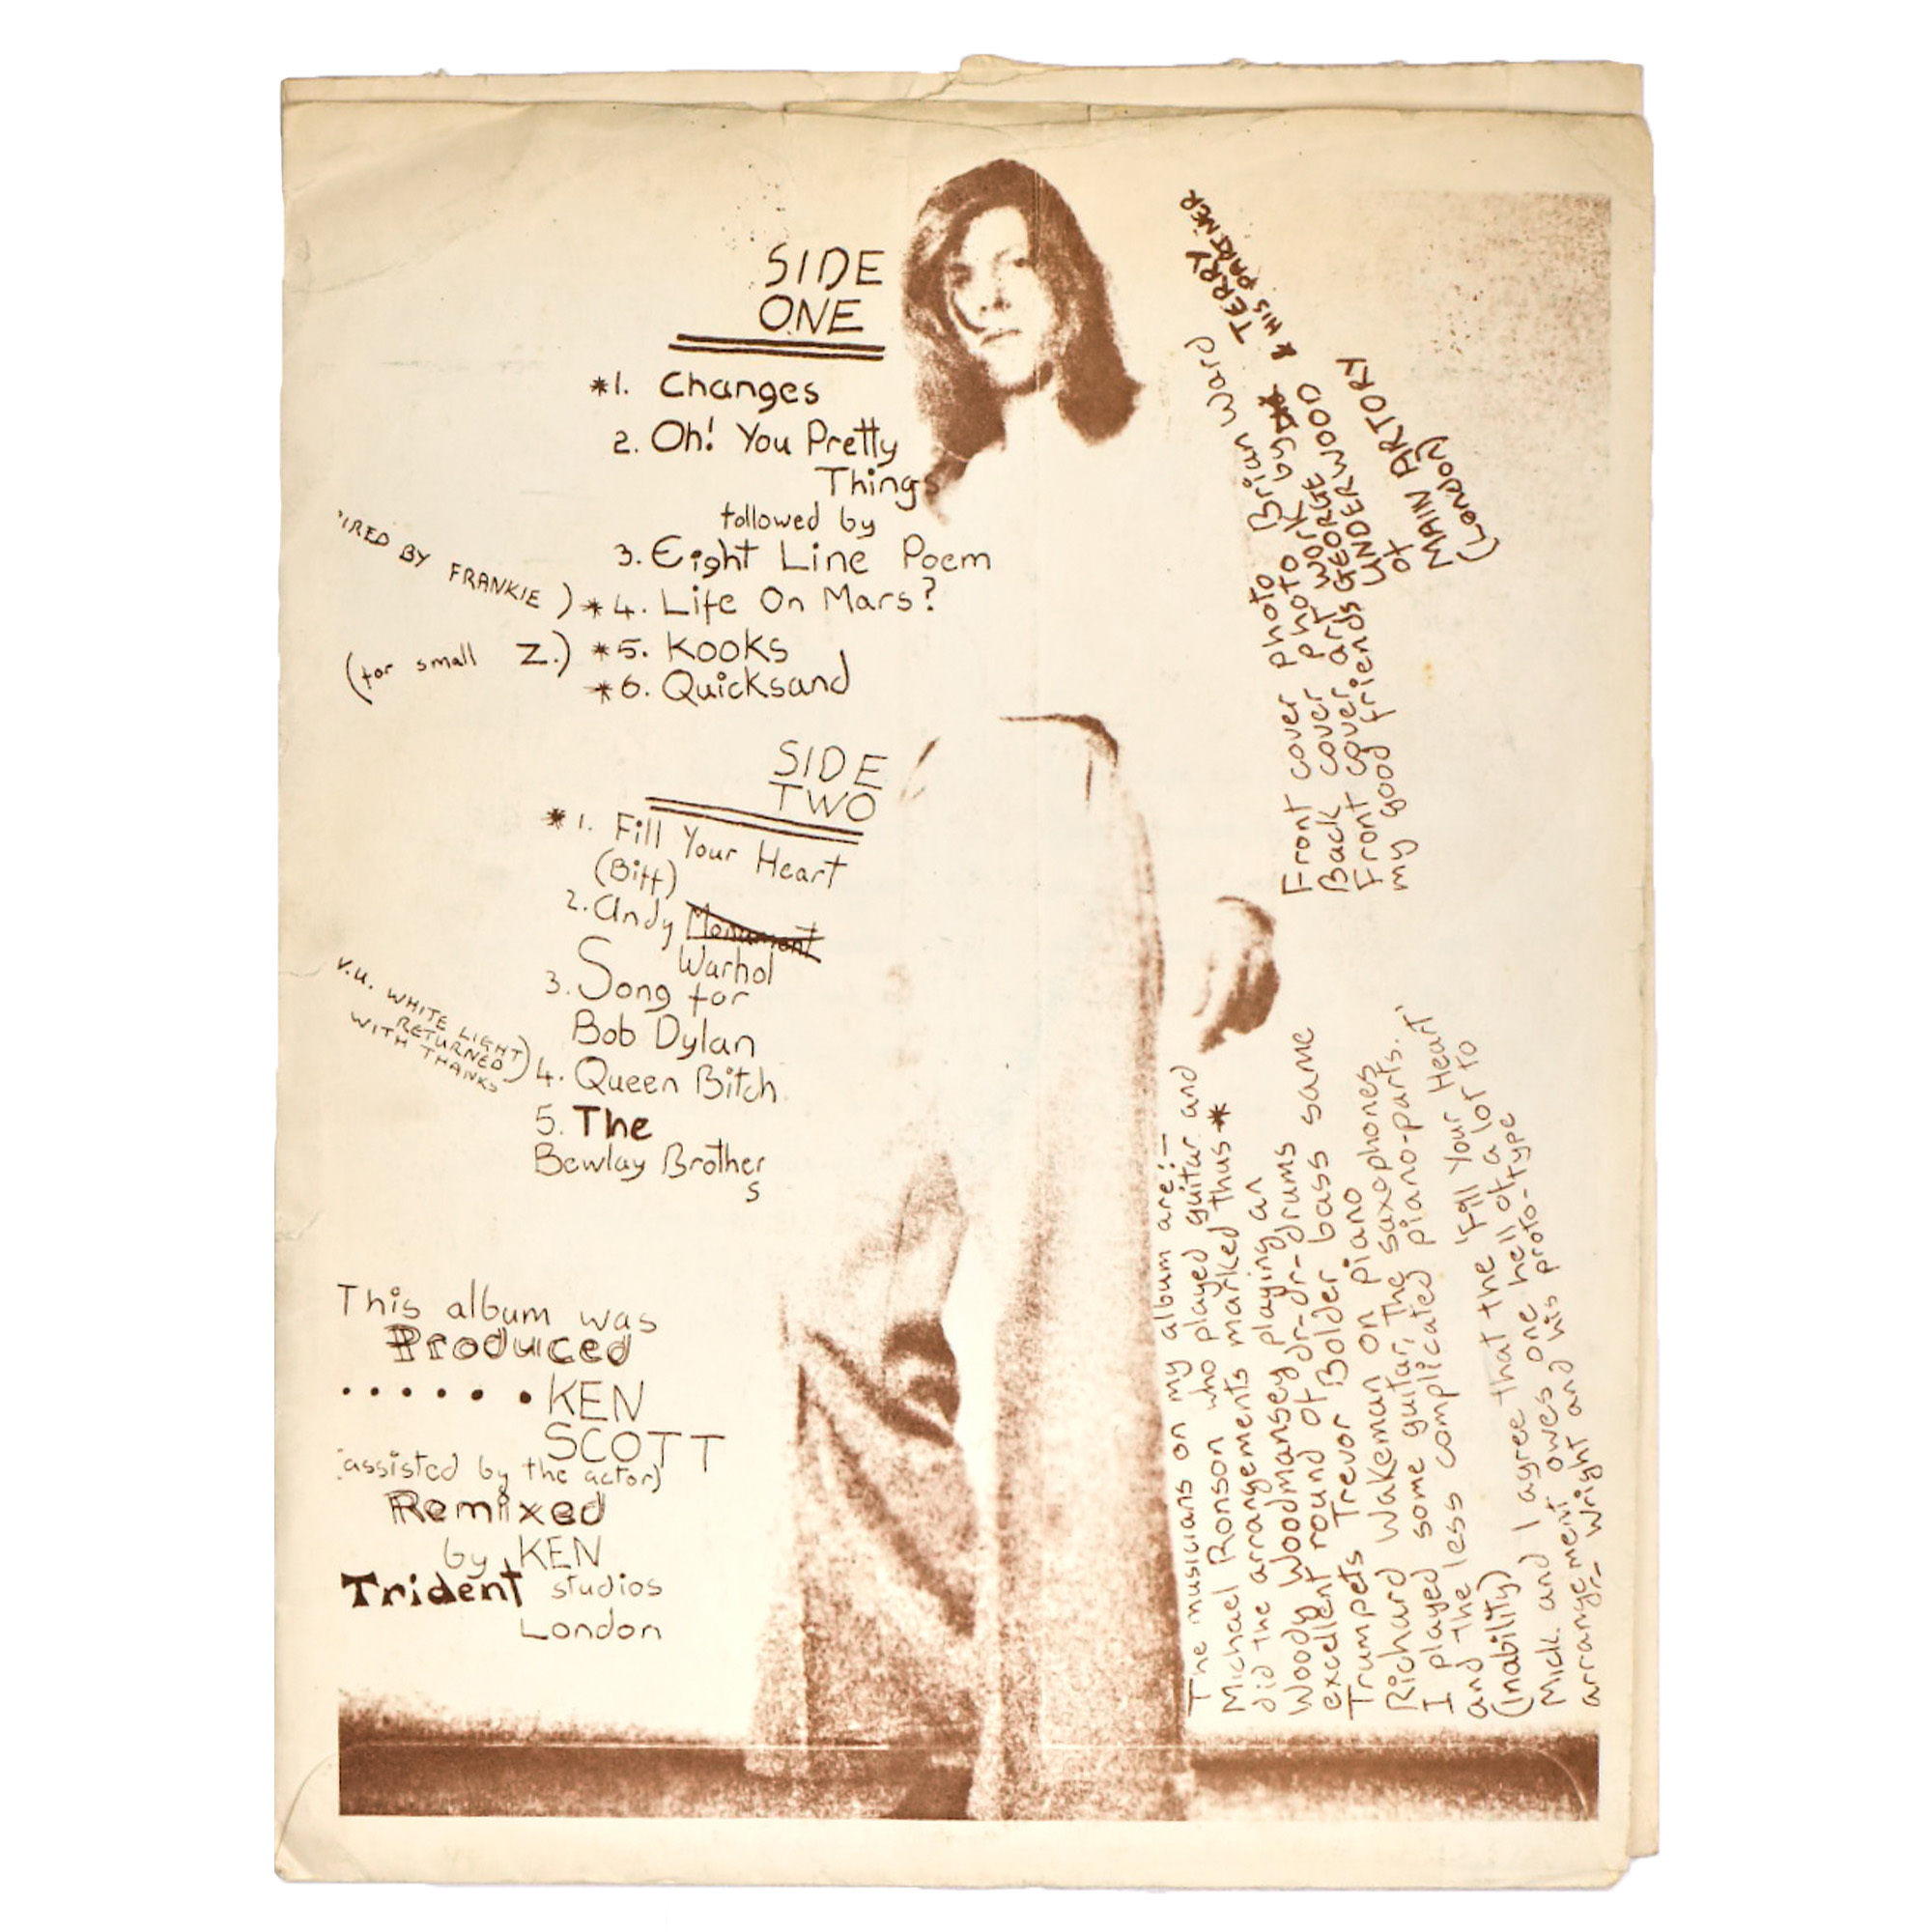 SIDE
ONE
*1. Changes
2. Oh! You Pretty
Things
followed by
3. Eight Line Poem
'IRED BY FRANKIE) *4. Life On Mars?
(for small Z.) *5. Kooks
*6. Quicksand
SIDE
TWO
*1. Fill Your Heart
(Biff)
2. Andy Monument
Warhol
3. Song for
Bob Dylan
V.U. WHITE LIGHT
RETURNED
WITH THANKS)
4. Queen Bitch
5. The
Bewlay Brother
s
This album was
Produced
......KEN
SCOTT
(assisted by the actor)
Remixed
by KEN
Trident studios
London
Front cover photo Brian Ward
Back cover photo by TERRY
Front cover art work by & HIS PARTNER
my good friends GEORGE UNDERWOOD
of
MAIN ARTORY
(London)
The musicians on my album are:-
Michael Ronson who played guitar and
did the arrangements marked thus *
Woody Woodmansey playing an
excellent round of dr-dr-drums
Trumpets Trevor Bolder bass same
Richard Wakeman on piano
I played some guitar, the saxophones
and the less complicated piano-parts.
(inability)
Mick and I agree that the 'Fill Your Heart'
arrangement owes one hell of a lot to
Arr- Wright and his proto-type